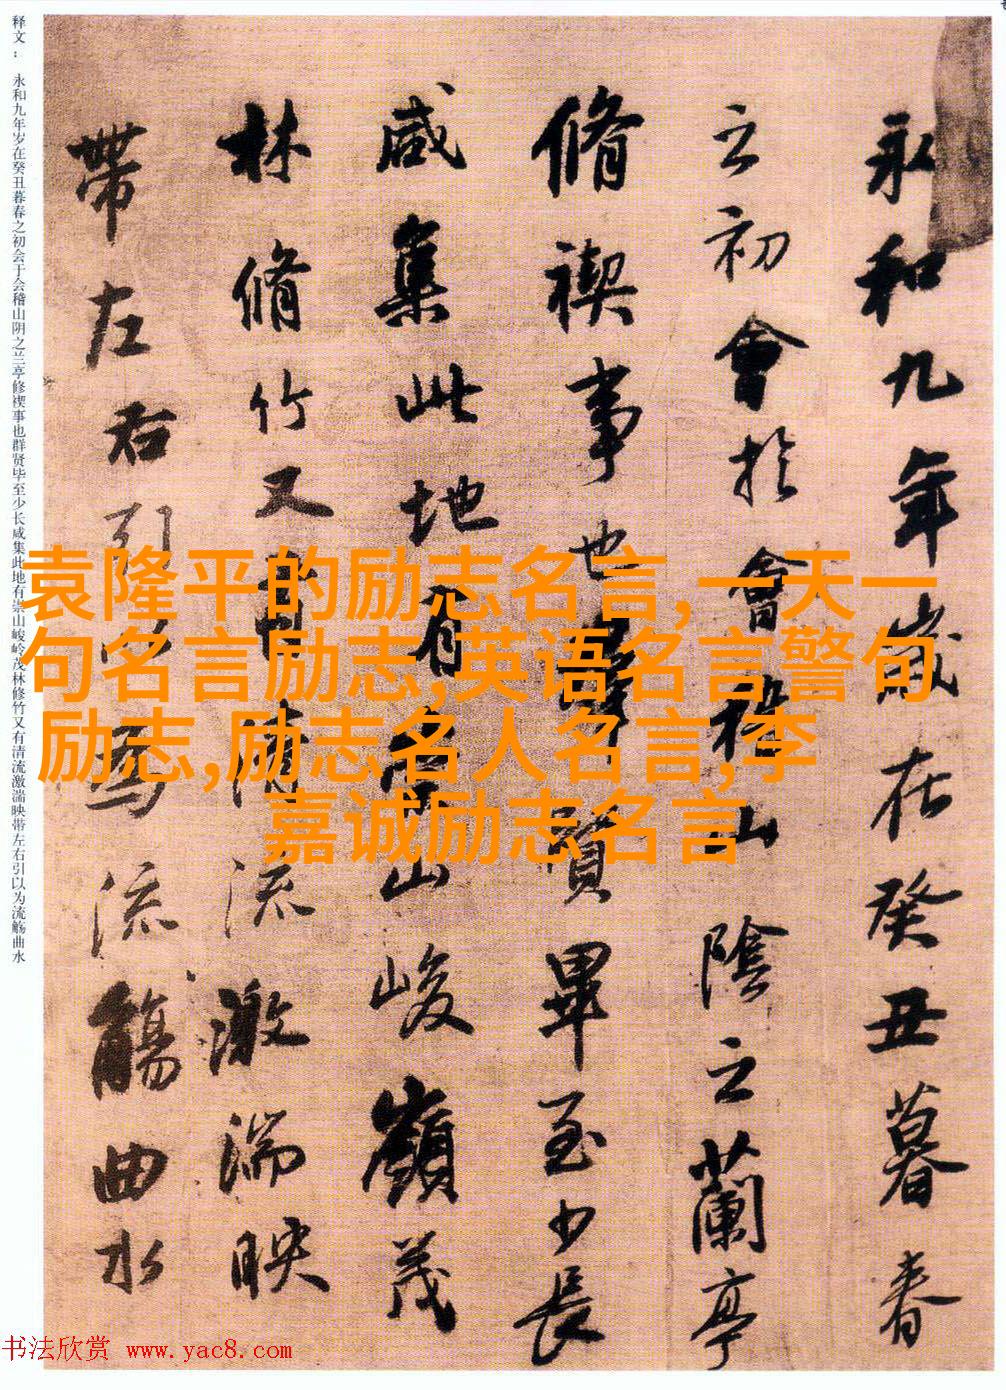 永和九年歲在癸丑暮春
之初會於會稽山陰之蘭亭
脩禊事也群賢畢至少長
咸集此地有崇山峻嶺茂
林脩竹又有清流激湍映
帶左右引以為流觴曲水
释文： 永和九年岁在癸丑暮春之初会于会稽山阴之兰亭修禊事也群贤毕至少长咸集此地有崇山峻岭茂林修竹又有清流激湍映带左右引以为流觞曲水
袁隆平的励志名言,一天一
句名言励志,英语名言警句
励志,励志名人名言,李
嘉诚励志名言
书法欣赏 www.yac8.com